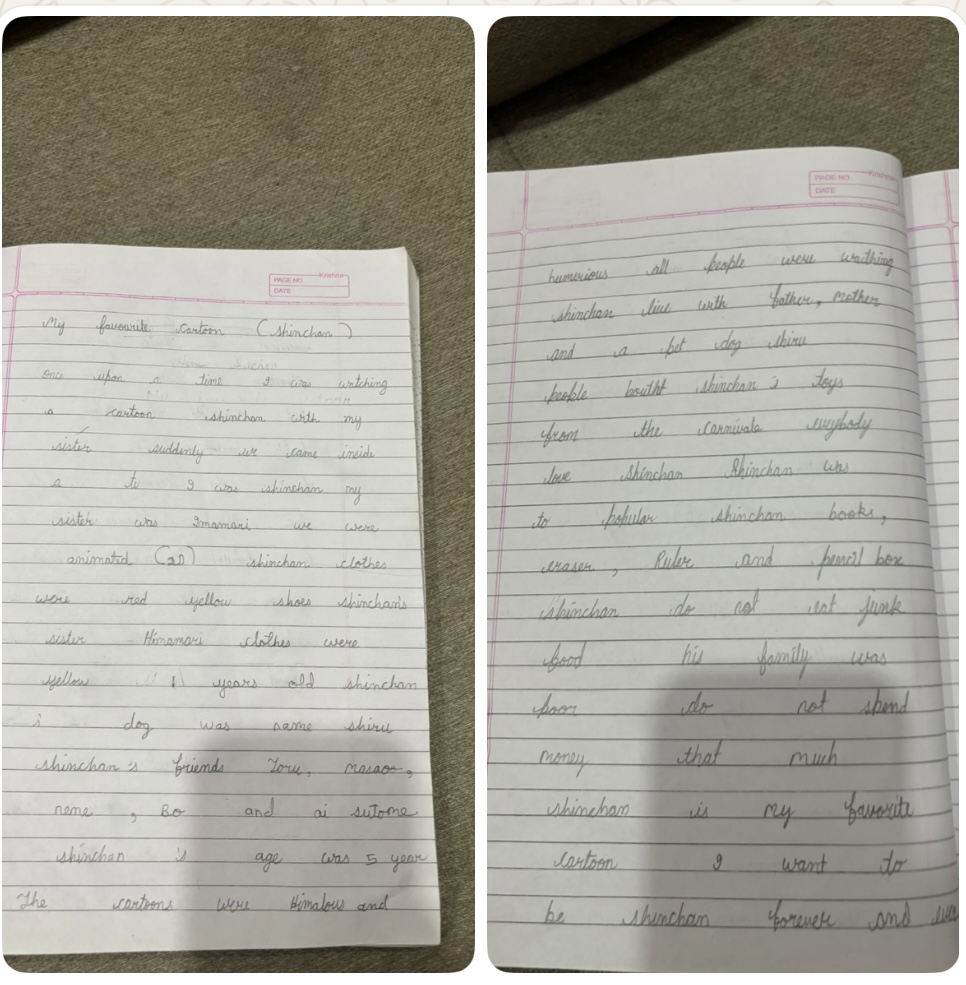 PAGE NO.
DATE
My favourite cartoon (shinchan)
once upon a time I was watching
a cartoon shinchan with my
sister suddenly we came inside
a tv I was shinchan my
sister was Imamari we were
animated (2D) shinchan clothes
were red yellow shoes shinchan's
sister Himamari clothes were
yellow 1 years old shinchan
's dog was name shiru
shinchan's friends Toru, masao,
nene, Bo and ai sutome
shinchan is age was 5 year
The cartoons were Himalous and
PAGE NO.
DATE
humerious all people were waithing
shinchan live with father, mother
and a pet dog shiru
people boutht shinchan's toys
from the carnivale evrybody
love shinchan Shinchan was
to popular shinchan books,
eraser, Ruler and pencil box
shinchan do not eat junk
food his family was
poor do not spend
money that much
shinchan is my favorite
cartoon I want to
be shinchan forever and ever